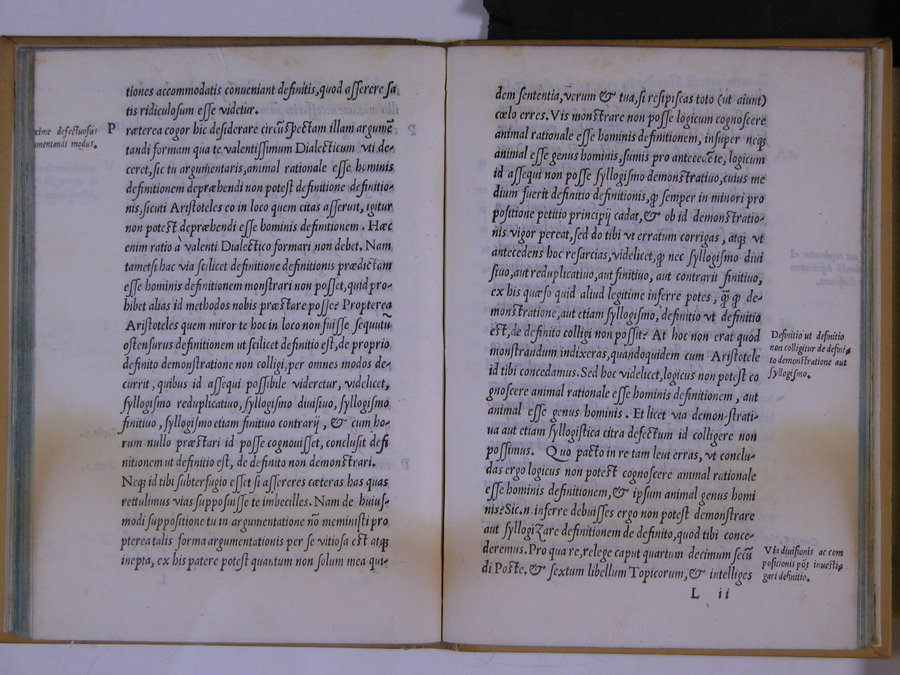 tiones accommodatis conueniant definitis, quod asserere sa
tis ridiculosum esse videtur.
xime defectuosus
mentandi modus.
P ræterea cogor hic desiderare circũspectam illam argumẽ
tandi formam qua te valentissimum Dialecticum vti de-
ceret, sic tu argumentaris, animal rationale esse hominis
definitionem depræhendi non potest definitione definitio-
nis, sicuti Aristoteles eo in loco quem citas asserunt, igitur
non potest depræhendi esse hominis definitionem. Hæc
enim ratio a valenti Dialectico formari non debet. Nam
tametsi hac via scilicet definitione definitionis prædictam
esse hominis definitionem monstrari non posset, quid pro-
hibet alias id methodos nobis præstare posse? Propterea
Aristoteles quem miror te hoc in loco non fuisse sequutũ
ostensurus definitionem ut scilicet definitio est, de proprio
definito demonstratione non colligi, per omnes modos de-
currit, quibus id assequi possibile videretur, videlicet,
syllogismo reduplicatiuo, syllogismo diuisiuo, syllogismo
finitiuo, syllogismo etiam finitiuo contrarij, & cum ho-
rum nullo præstari id posse cognouisset, conclusit defi
nitionem ut definitio est, de definito non demonstrari.
Neq; id tibi subterfugio esset si assereres cæteras has quas
rettulimus vias supposuisse te imbecilles. Nam de huius-
modi suppositione tu in argumentatione nõ meministi pro
pterea talis forma argumentationis per se vitiosa est atq;
inepta, ex his patere potest quantum non solum mea qui-
dem sententia, verum & tua, si resipiscas toto (ut aiunt)
cœlo erres. Vis monstrare non posse logicum cognoscere
animal rationale esse hominis definitionem, insuper neq;
animal esse genus hominis, sumis pro antecedẽte, logicum
id assequi non posse syllogismo demonstratiuo, cuius me
dium fuerit definitio definitionis, q; semper in minori pro
positione petitio principij cadat, & ob id demonstratio-
nis vigor pereat, sed do tibi vt erratum corrigas, atq; vt
antecedens hoc resarcias, videlicet, q; nec syllogismo diui
siuo, aut reduplicatiuo, aut finitiuo, aut contrarii finitiuo,
ex his quæso quid aliud legitime inferre potes, q̃ q; de-
monstratione, aut etiam syllogismo, definitio vt definitio
est, de definito colligi non possit? At hoc non erat quod
monstrandum indixeras, quandoquidem cum Aristotele
id tibi concedamus. Sed hoc videlicet, logicus non potest co
gnoscere animal rationale esse hominis definitionem, aut
animal esse genus hominis. Et licet via demon-strati-
ua aut etiam syllogistica citra defectum id colligere non
possimus. Quo pacto in re tam leui erras, vt conclu-
das ergo logicus non potest cognoscere animal rationale
esse hominis definitionem, & ipsum animal genus homi
nis? Sic.n. inferre debuisses ergo non potest demonstrare
aut syllogizare definitionem de definito, quod tibi conce-
deremus. Pro qua re, relege caput quartum decimum secũ
di Poste. & sextum libellum Topicorum, & intelliges
Definitio ut definitio
non colligitur de defini-
to demonstratione aut
syllogismo.
Vis diuisionis ac com
positionis põt inuesti-
gari definitio.
L ii